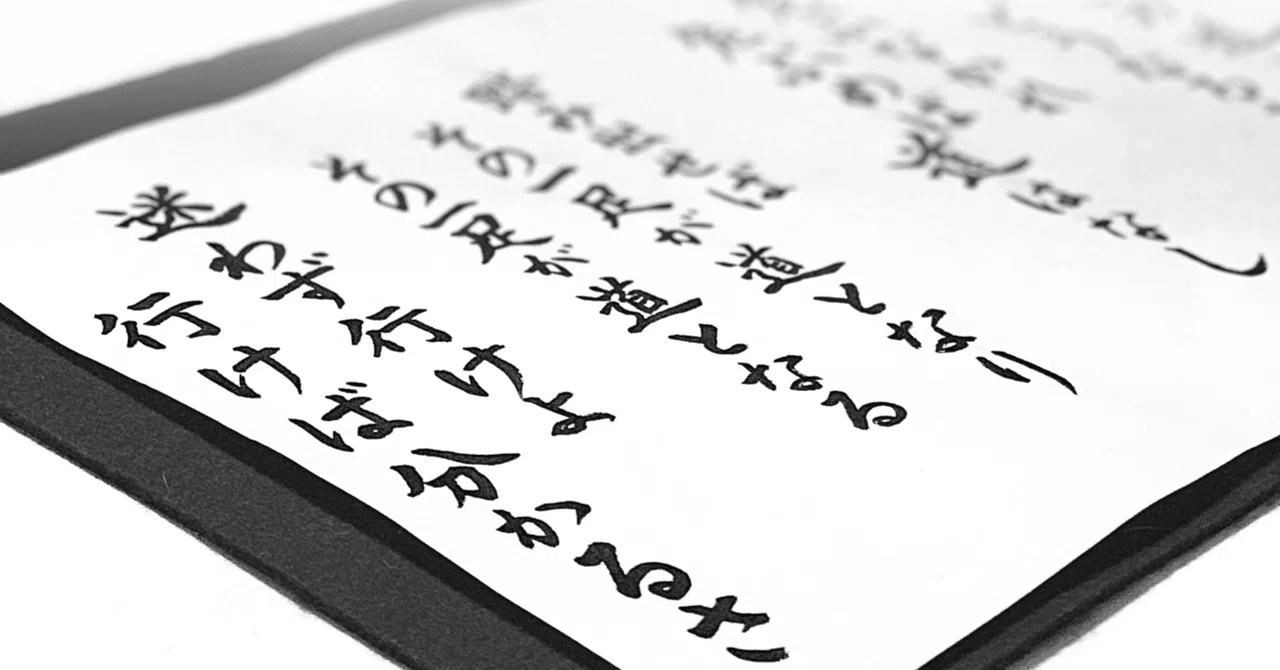 なかれ
危ぶめば 道はなし
踏み出せば
その一足が道となり
その一足が道となる
迷わず行けよ
行けば分かるさ